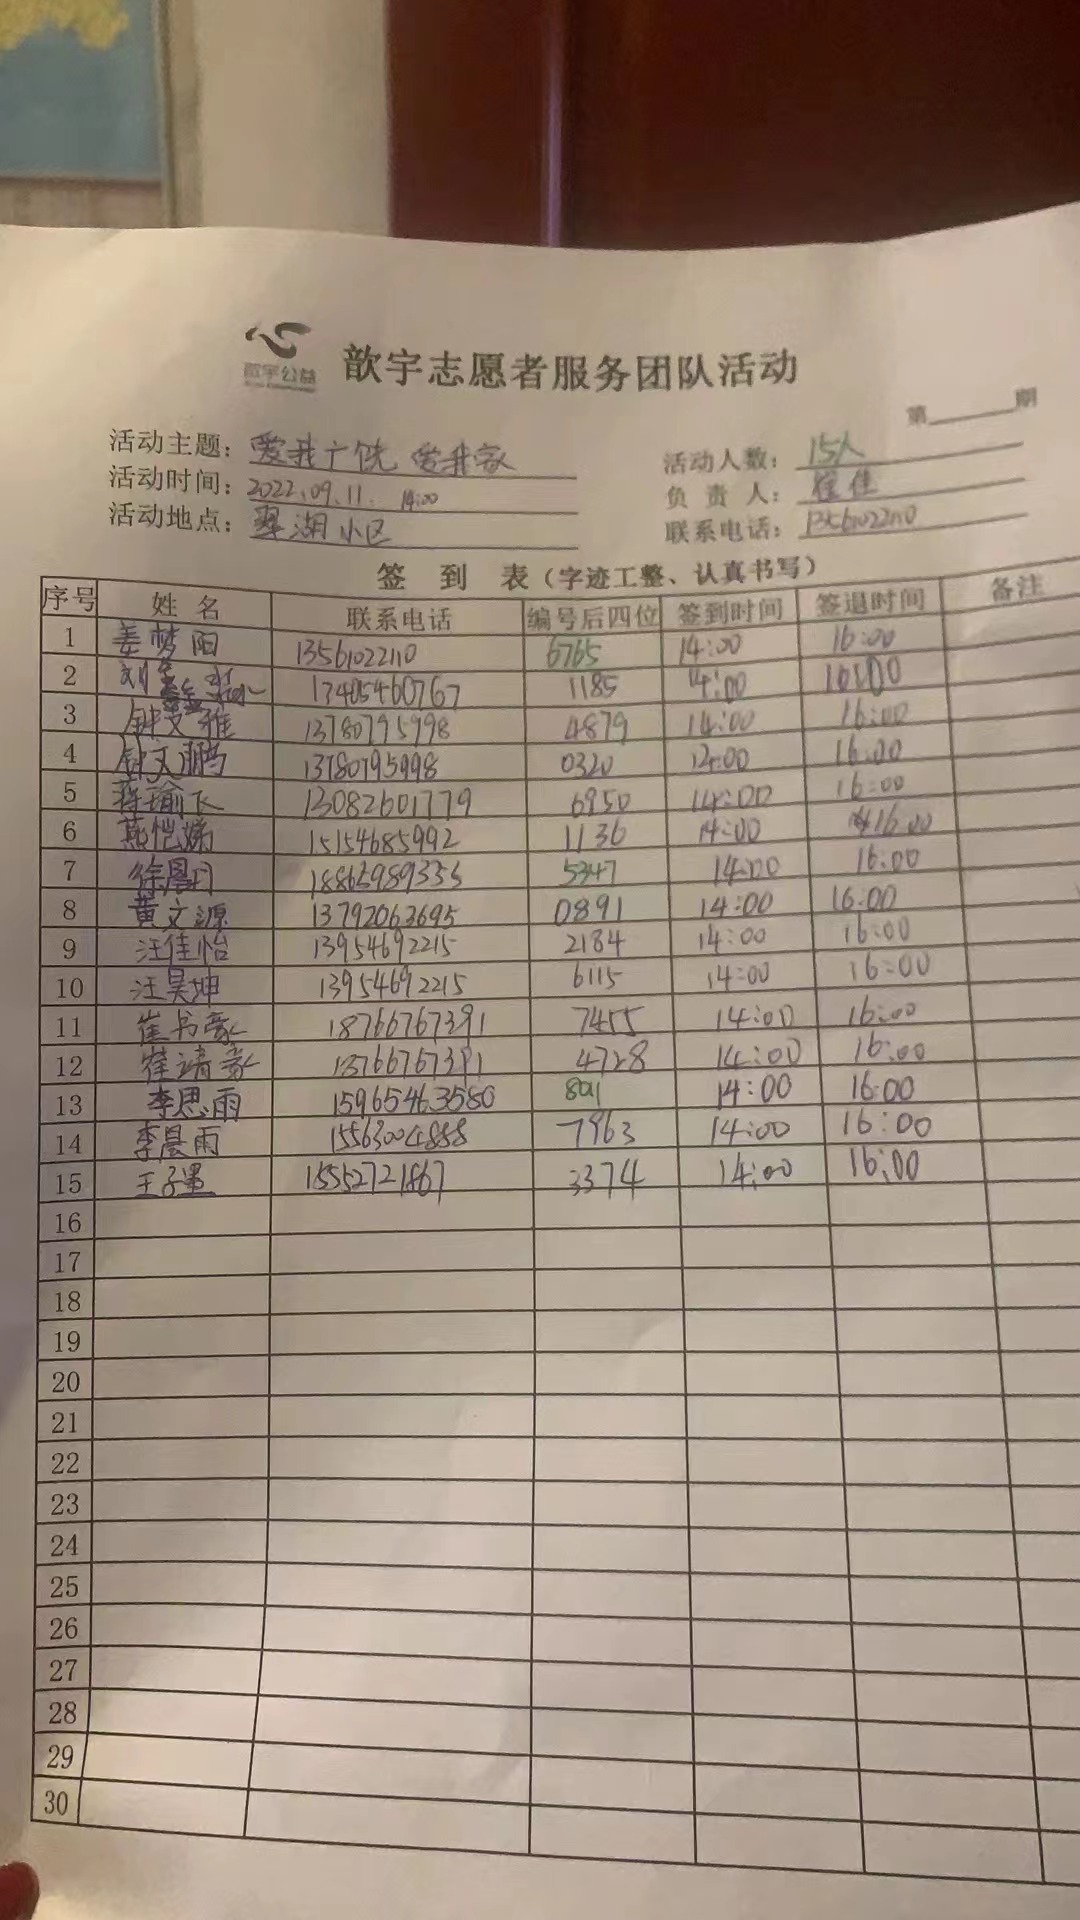 歆宇公益
歆宇志愿者服务团队活动
第 期
活动主题：爱我广饶 爱我家
活动人数：15人
活动时间：2022.09.11. 14:00
负 责 人：崔佳
活动地点：翠湖小区
联系电话：13561022110
签 到 表（字迹工整、认真书写）
序号 姓 名 联系电话 编号后四位 签到时间 签退时间 备注
1 姜梦阳 13561022110 6765 14:00 16:00
2 刘 13405460767 1185 14:00 16:00
3 钟文雅 13780795998 4879 14:00 16:00
4 钟文鹏 13780795998 0320 14:00 16:00
5 蒋瑜飞 13082601779 6950 14:00 16:00
6 燕恺娣 15154685992 1136 14:00 16:00
7 徐晨月 18865989355 5347 14:00 16:00
8 黄文源 13792063695 0891 14:00 16:00
9 汪佳怡 13954692215 2184 14:00 16:00
10 汪昊坤 13954692215 6115 14:00 16:00
11 崔书豪 18766767391 7455 14:00 16:00
12 崔靖豪 18766767391 4728 14:00 16:00
13 李思雨 15965463580 8091 14:00 16:00
14 李晨雨 15563004888 7963 14:00 16:00
15 王子 15552721867 3374 14:00 16:00
16
17
18
19
20
21
22
23
24
25
26
27
28
29
30